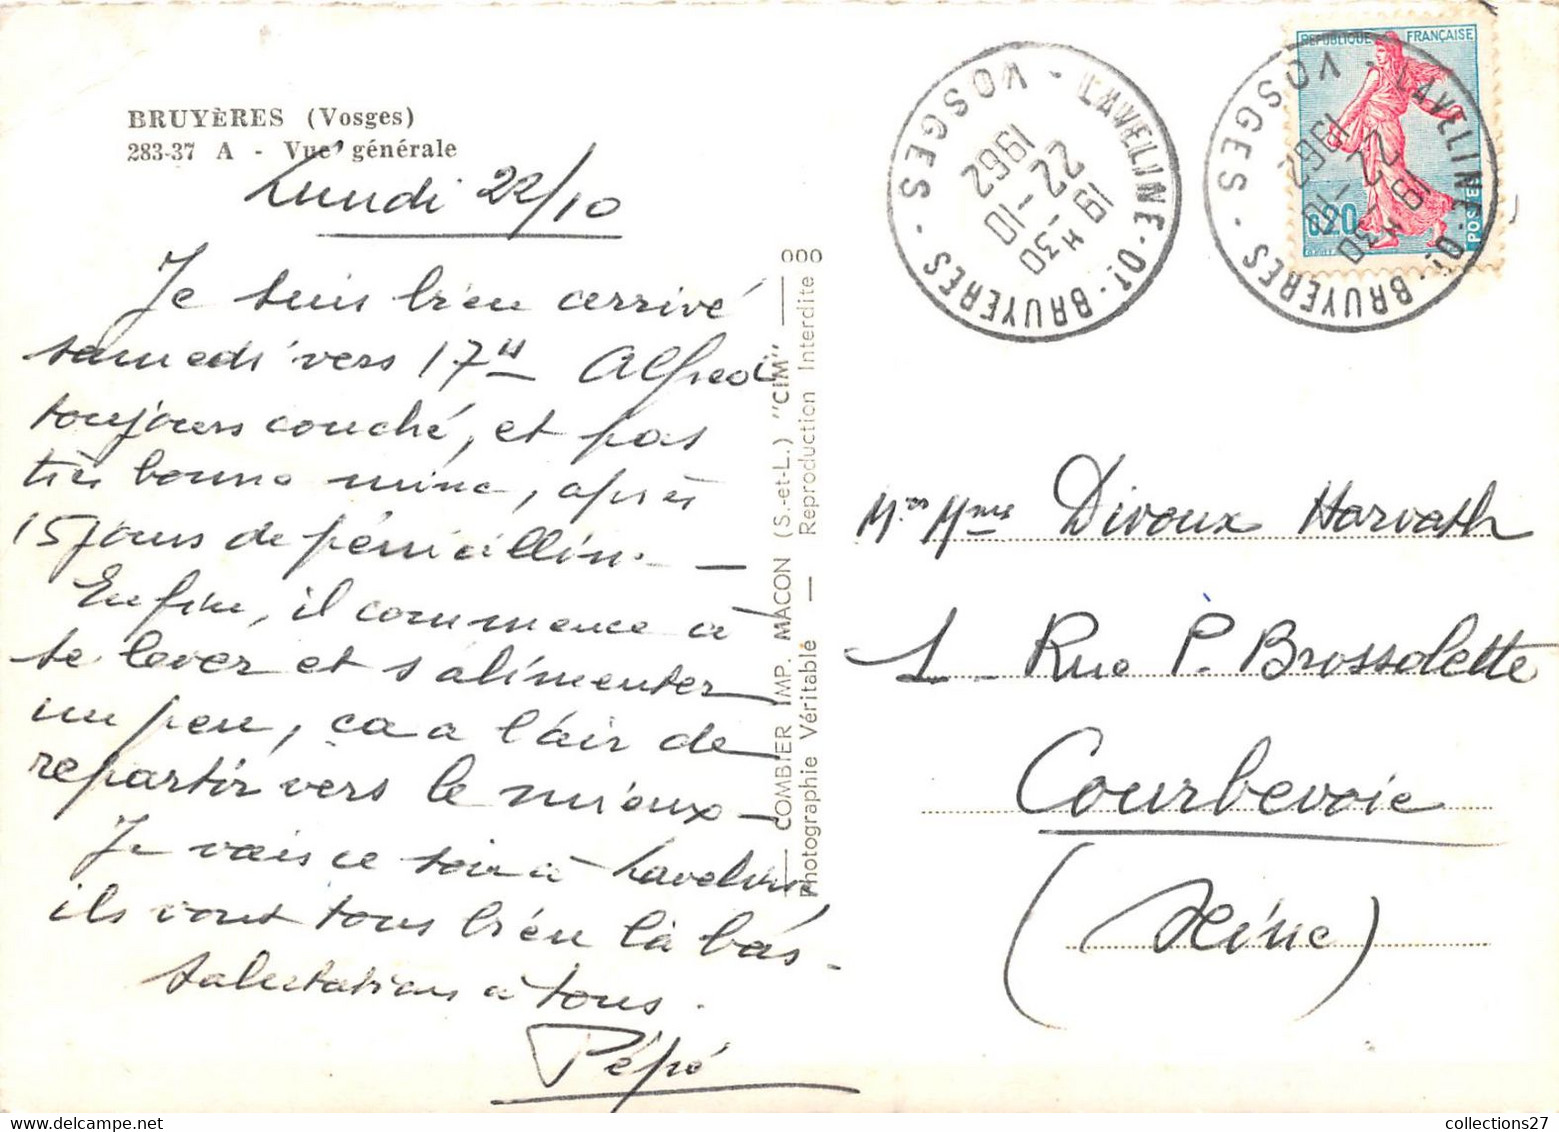 BRUYÈRES (Vosges)
283-37 A - Vue générale
Lundi 22/10
Je suis bien arrivé
samedi vers 17H Alfred
toujours couché, et pas
très bonne mine, après
15 jours de pénicilline —
Enfin, il commence à
se lever et s'alimenter
un peu, ça a l'air de
repartir vers le mieux —
Je vais ce soir à Laveline
ils vont tous bien là bas -
Salutations à tous.
Pépé
COMBIER IMP. MACON (S.-et-L.) "CIM"
Photographie Véritable — Reproduction Interdite
000
LAVELINE-Dt-BRUYERES - VOSGES -
19 H 30
22 - 10
1962
LAVELINE-Dt-BRUYERES - VOSGES -
19 H 30
22 - 10
1962
REPUBLIQUE FRANÇAISE
0,20
POSTES
Mrs Mmes Divoux Horvath
1 Rue P. Brossolette
Courbevoie
(Seine)
collections27